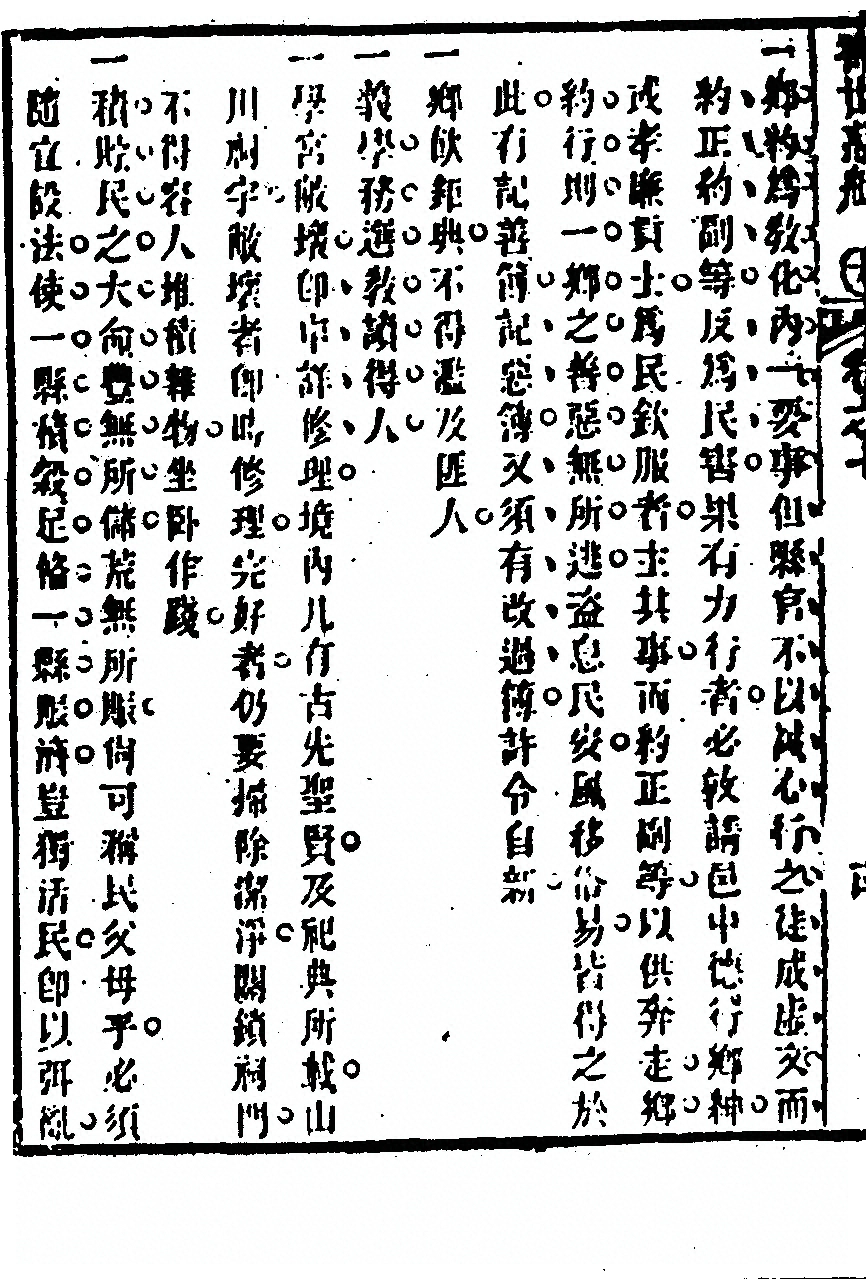 一鄉約爲教化內一要事但縣官不以誠心行之徒成虛文而
約正約副等反爲民害果有力行者必敦請邑中德行鄉紳
或孝廉貢士爲民欽服者主其事而約正副等以供奔走鄉
約行則一鄉之善惡無所逃盜息民安風移俗易皆得之於
此有記善簿記惡簿又須有改過簿許令自新
一鄉飲鉅典不得濫及匪人
一義學務選教讀得人
一學宮敝壞卽申詳修理境內凡有古先聖賢及祀典所載山
川廟宇敝壞者卽時修理完好者仍要掃除潔淨關鎖廟門
不得容人堆積雜物坐臥作踐
一積貯民之大命豐無所儲荒無所賑尙可稱民父母乎必須
隨宜設法使一縣積穀足備一縣賑濟豈獨活民卽以弭亂